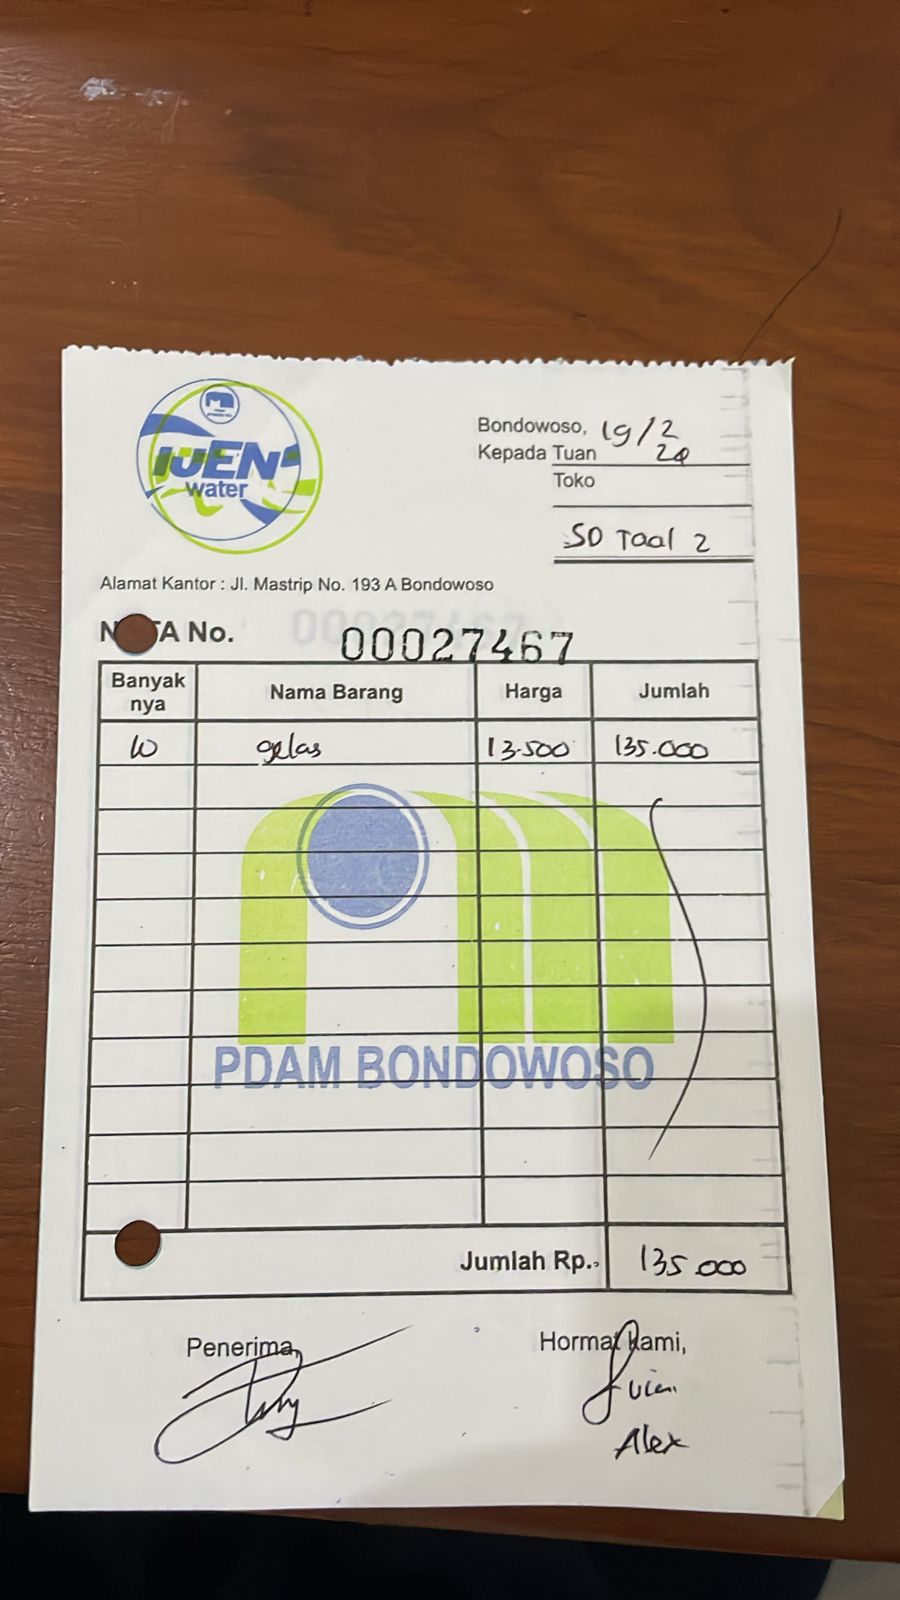 IJEN
water
Bondowoso, 19/2
Kepada Tuan 20
Toko
SD Taal 2
Alamat Kantor : Jl. Mastrip No. 193 A Bondowoso
N TA No. 00027467
Banyak nya Nama Barang Harga Jumlah
10 gelas 13.500 135.000
PDAM BONDOWOSO
Jumlah Rp.. 135.000
Penerima, Hormat kami,
Alex